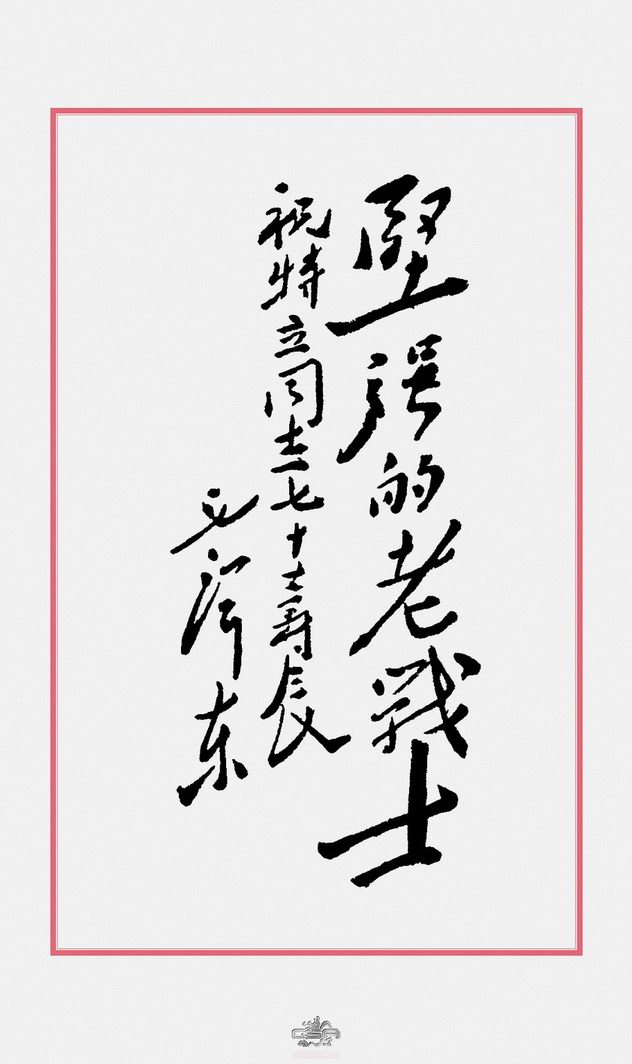 堅強的老戰士
祝特立同志七十大壽辰
毛澤东